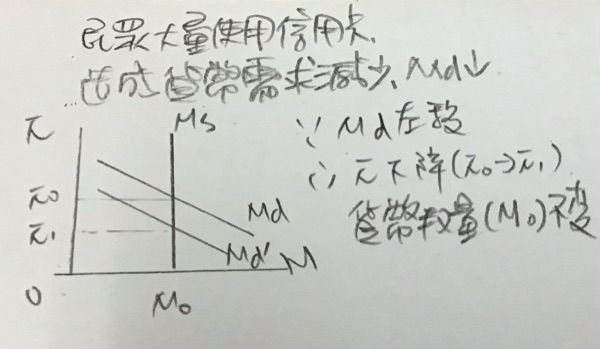 民眾大量使用信用卡,
造成貨幣需求減少, Md↓
∵ Md左移
∴ r下降(r0→r1)
貨幣數量(M0)不變
r
Ms
r0
r1
Md
Md'
M
0
M0